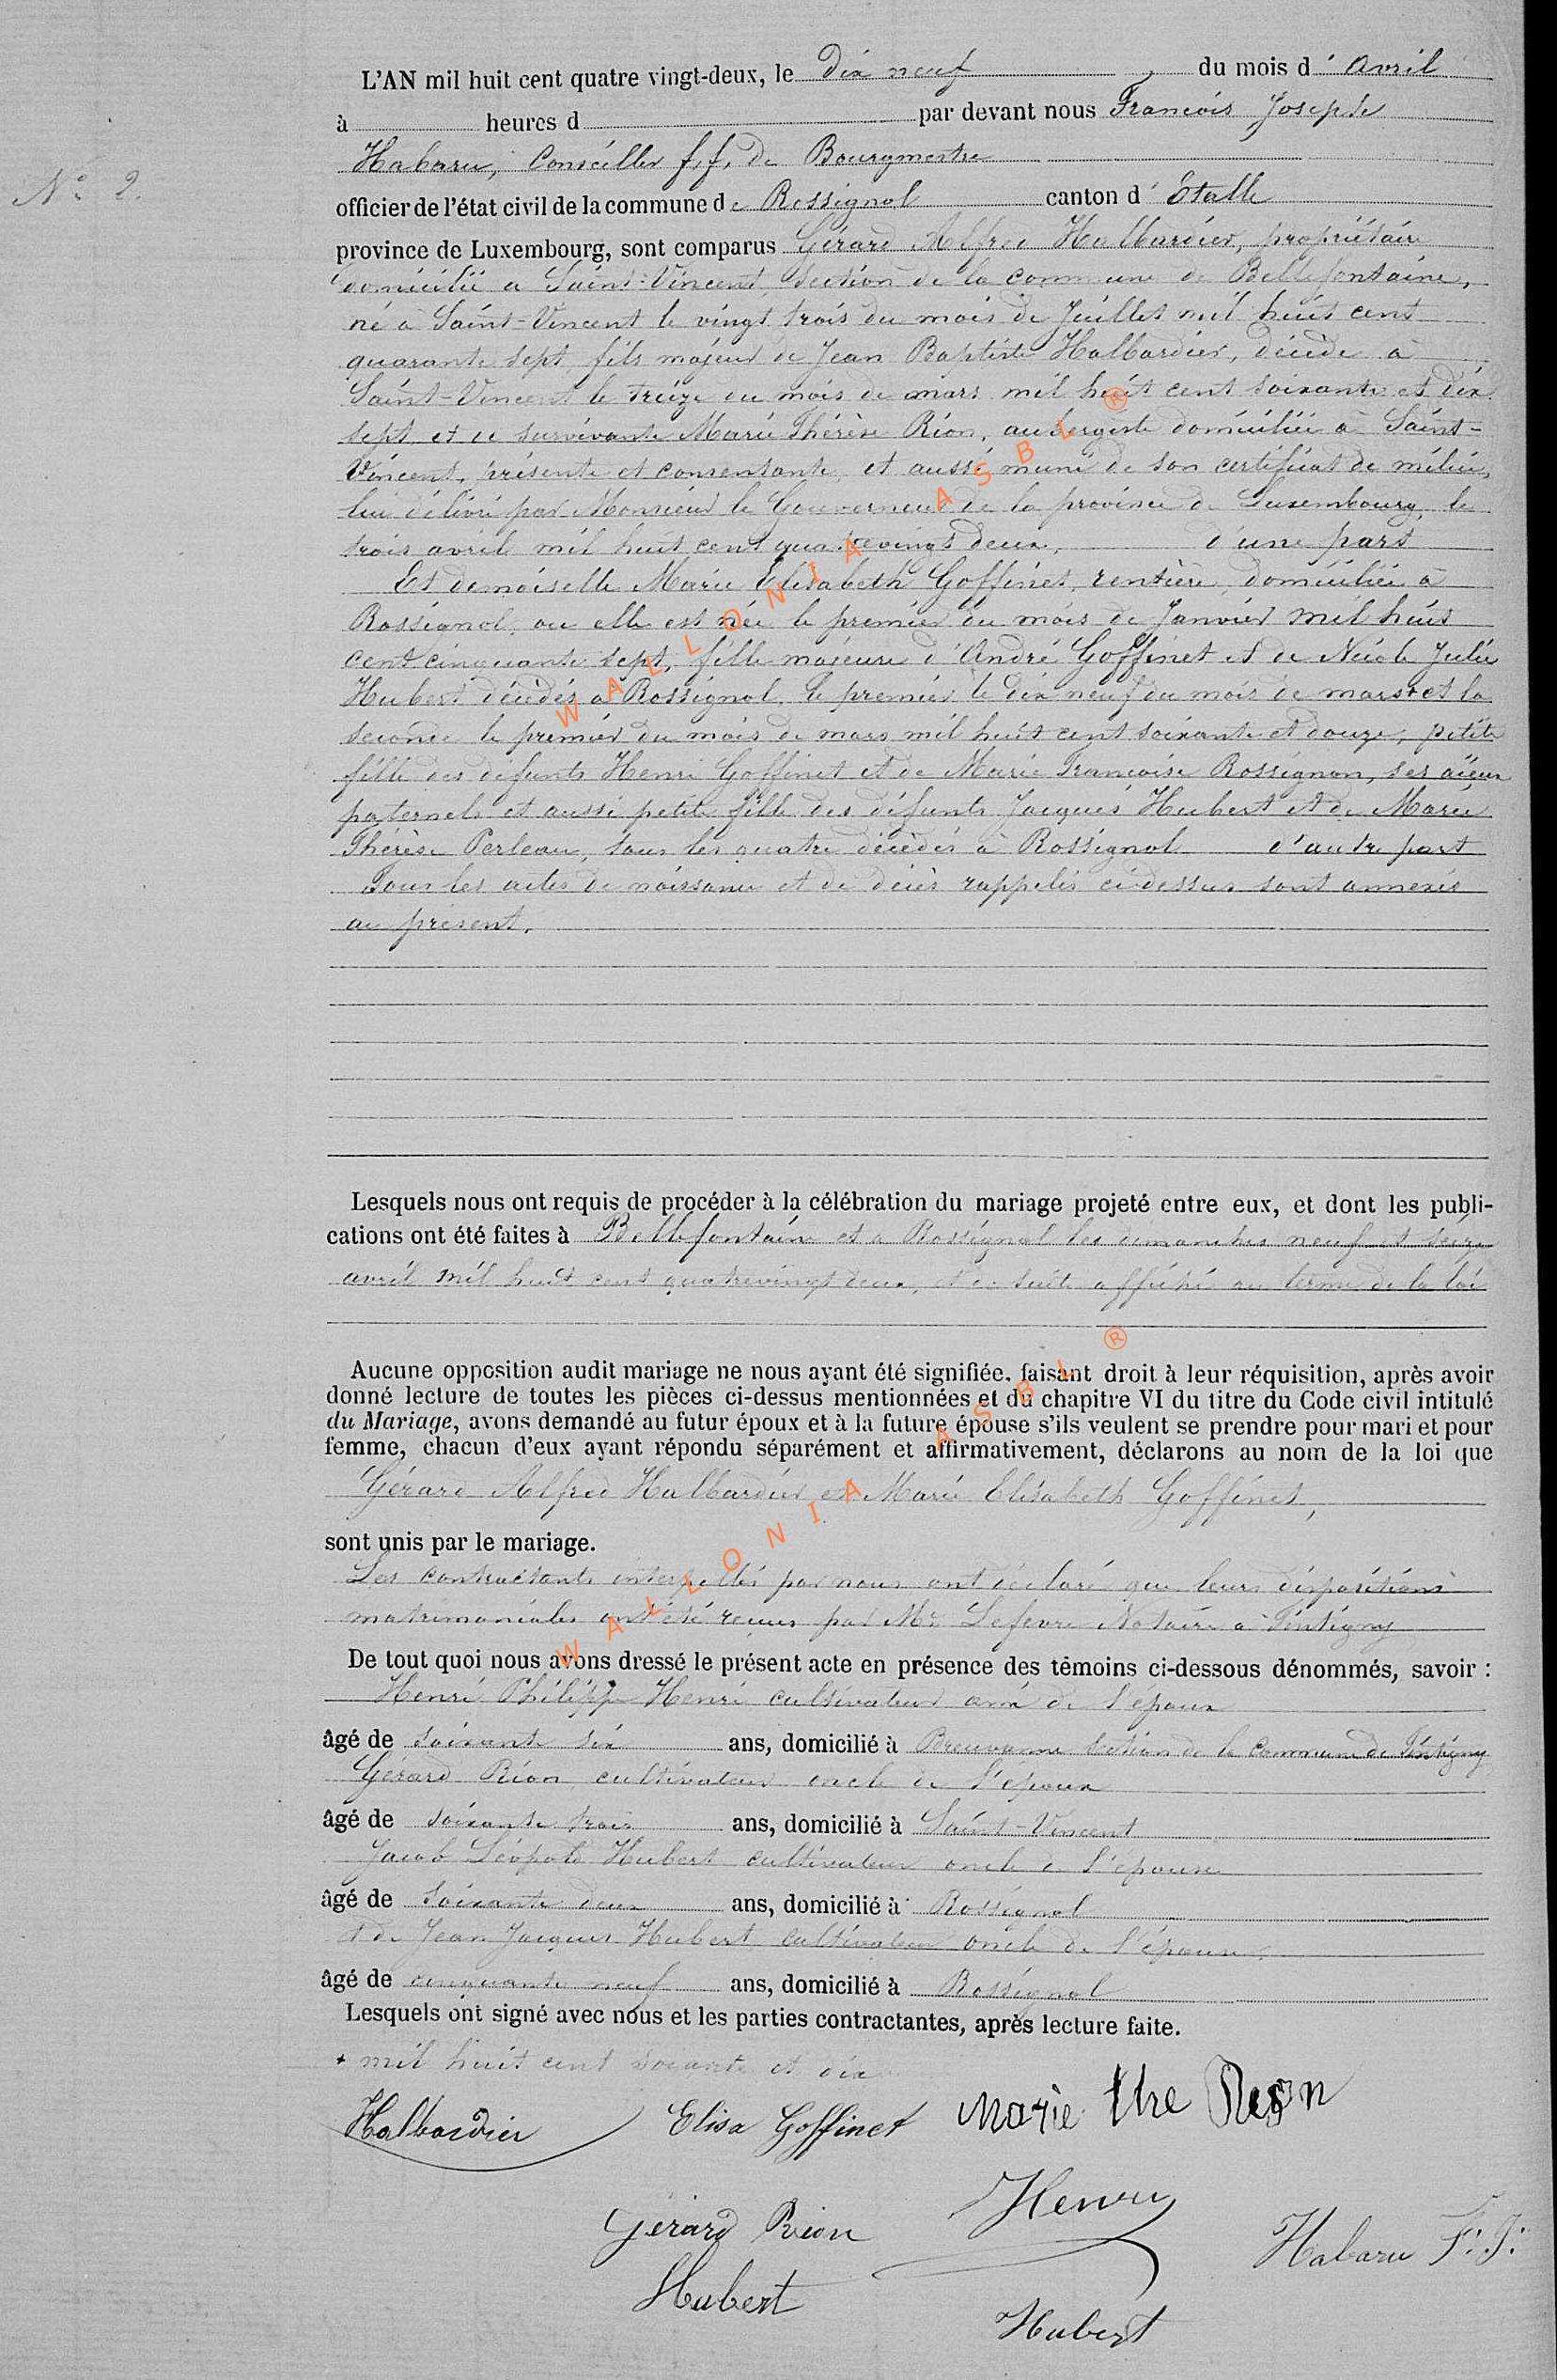 L'AN mil huit cent quatre vingt-deux, le dix neuf du mois d'avril
à heures d par devant nous Francois Joseph
Habaru, Conseiller f.f. de Bourgmestre
N° 2.
officier de l'état civil de la commune de Rossignol canton d'Etalle
province de Luxembourg, sont comparus Gérard Alfred Halbardier, propriétaire
domicilié a Saint-Vincent, section de la commune de Bellefontaine,
né à Saint-Vincent le vingt trois du mois de Juillet mil huit cent
quarante sept, fils majeur de Jean Baptiste Halbardier, décédé à
Saint-Vincent le treize du mois de mars mil huit cent soixante et dix
sept et de survivante Marie Thérèse Rion, aubergiste domiciliée à Saint-
Vincent, présente et consentante, et aussi muni de son certificat de milice,
lui délivré par Monsieur le Gouverneur de la province de Luxembourg, le
trois avril mil huit cent quatrevingt deux, d'une part
Et demoiselle Marie Elisabeth Goffinet, rentière, domiciliée à
Rossignol, ou elle est née le premier du mois de Janvier mil huit
cent cinquante sept, fille majeure d'André Goffinet et de Nicole Julie
Hubert décédés à Rossignol, le premier le dix neuf du mois de mars + et la
seconde le premier du mois de mars mil huit cent soixante et douze, petite
fille des défunts Henri Goffinet et de Marie Françoise Rossignon, ses aïeux
paternels et aussi petite fille des défunts Jacques Hubert et de Marie
Thérèse Perleau, tous les quatre décédés à Rossignol d'autre part
Tous les actes de naissance et de décès rappelés ci-dessus sont annexés
au présent.
Lesquels nous ont requis de procéder à la célébration du mariage projeté entre eux, et dont les publi-
cations ont été faites à Bellefontaine et a Rossignol les dimanches neuf et seize
avril mil huit cent quatrevingt deux, et de suite affiché au terme de la loi
Aucune opposition audit mariage ne nous ayant été signifiée, faisant droit à leur réquisition, après avoir
donné lecture de toutes les pièces ci-dessus mentionnées et du chapitre VI du titre du Code civil intitulé
du Mariage, avons demandé au futur époux et à la future épouse s'ils veulent se prendre pour mari et pour
femme, chacun d'eux ayant répondu séparément et affirmativement, déclarons au nom de la loi que
Gérard Alfred Halbardier et Marie Elisabeth Goffinet,
sont unis par le mariage.
Les contractants interpellés par nous ont déclaré que leurs dispositions
matrimoniales ont été reçues par Mr Lefevre Notaire à Tintigny
De tout quoi nous avons dressé le présent acte en présence des témoins ci-dessous dénommés, savoir :
Henri Philippe Henri cultivateur ami de l'époux
âgé de soixante six ans, domicilié à Breuvanne section de la commune de Tintigny
Gérard Rion cultivateur oncle de l'époux
âgé de soixante trois ans, domicilié à Saint-Vincent
Jacob Léopold Hubert cultivateur oncle de l'épouse
âgé de soixante deux ans, domicilié à Rossignol
et de Jean Jacques Hubert cultivateur oncle de l'épouse,
âgé de cinquante neuf ans, domicilié à Rossignol
Lesquels ont signé avec nous et les parties contractantes, après lecture faite.
+ mil huit cent soixante et dix
Halbardier Elisa Goffinet Marie the Rion
Henry
Gérard Rion Habaru F. J.
Hubert
Hubert
WALLONIA ASBL ®
WALLONIA ASBL ®